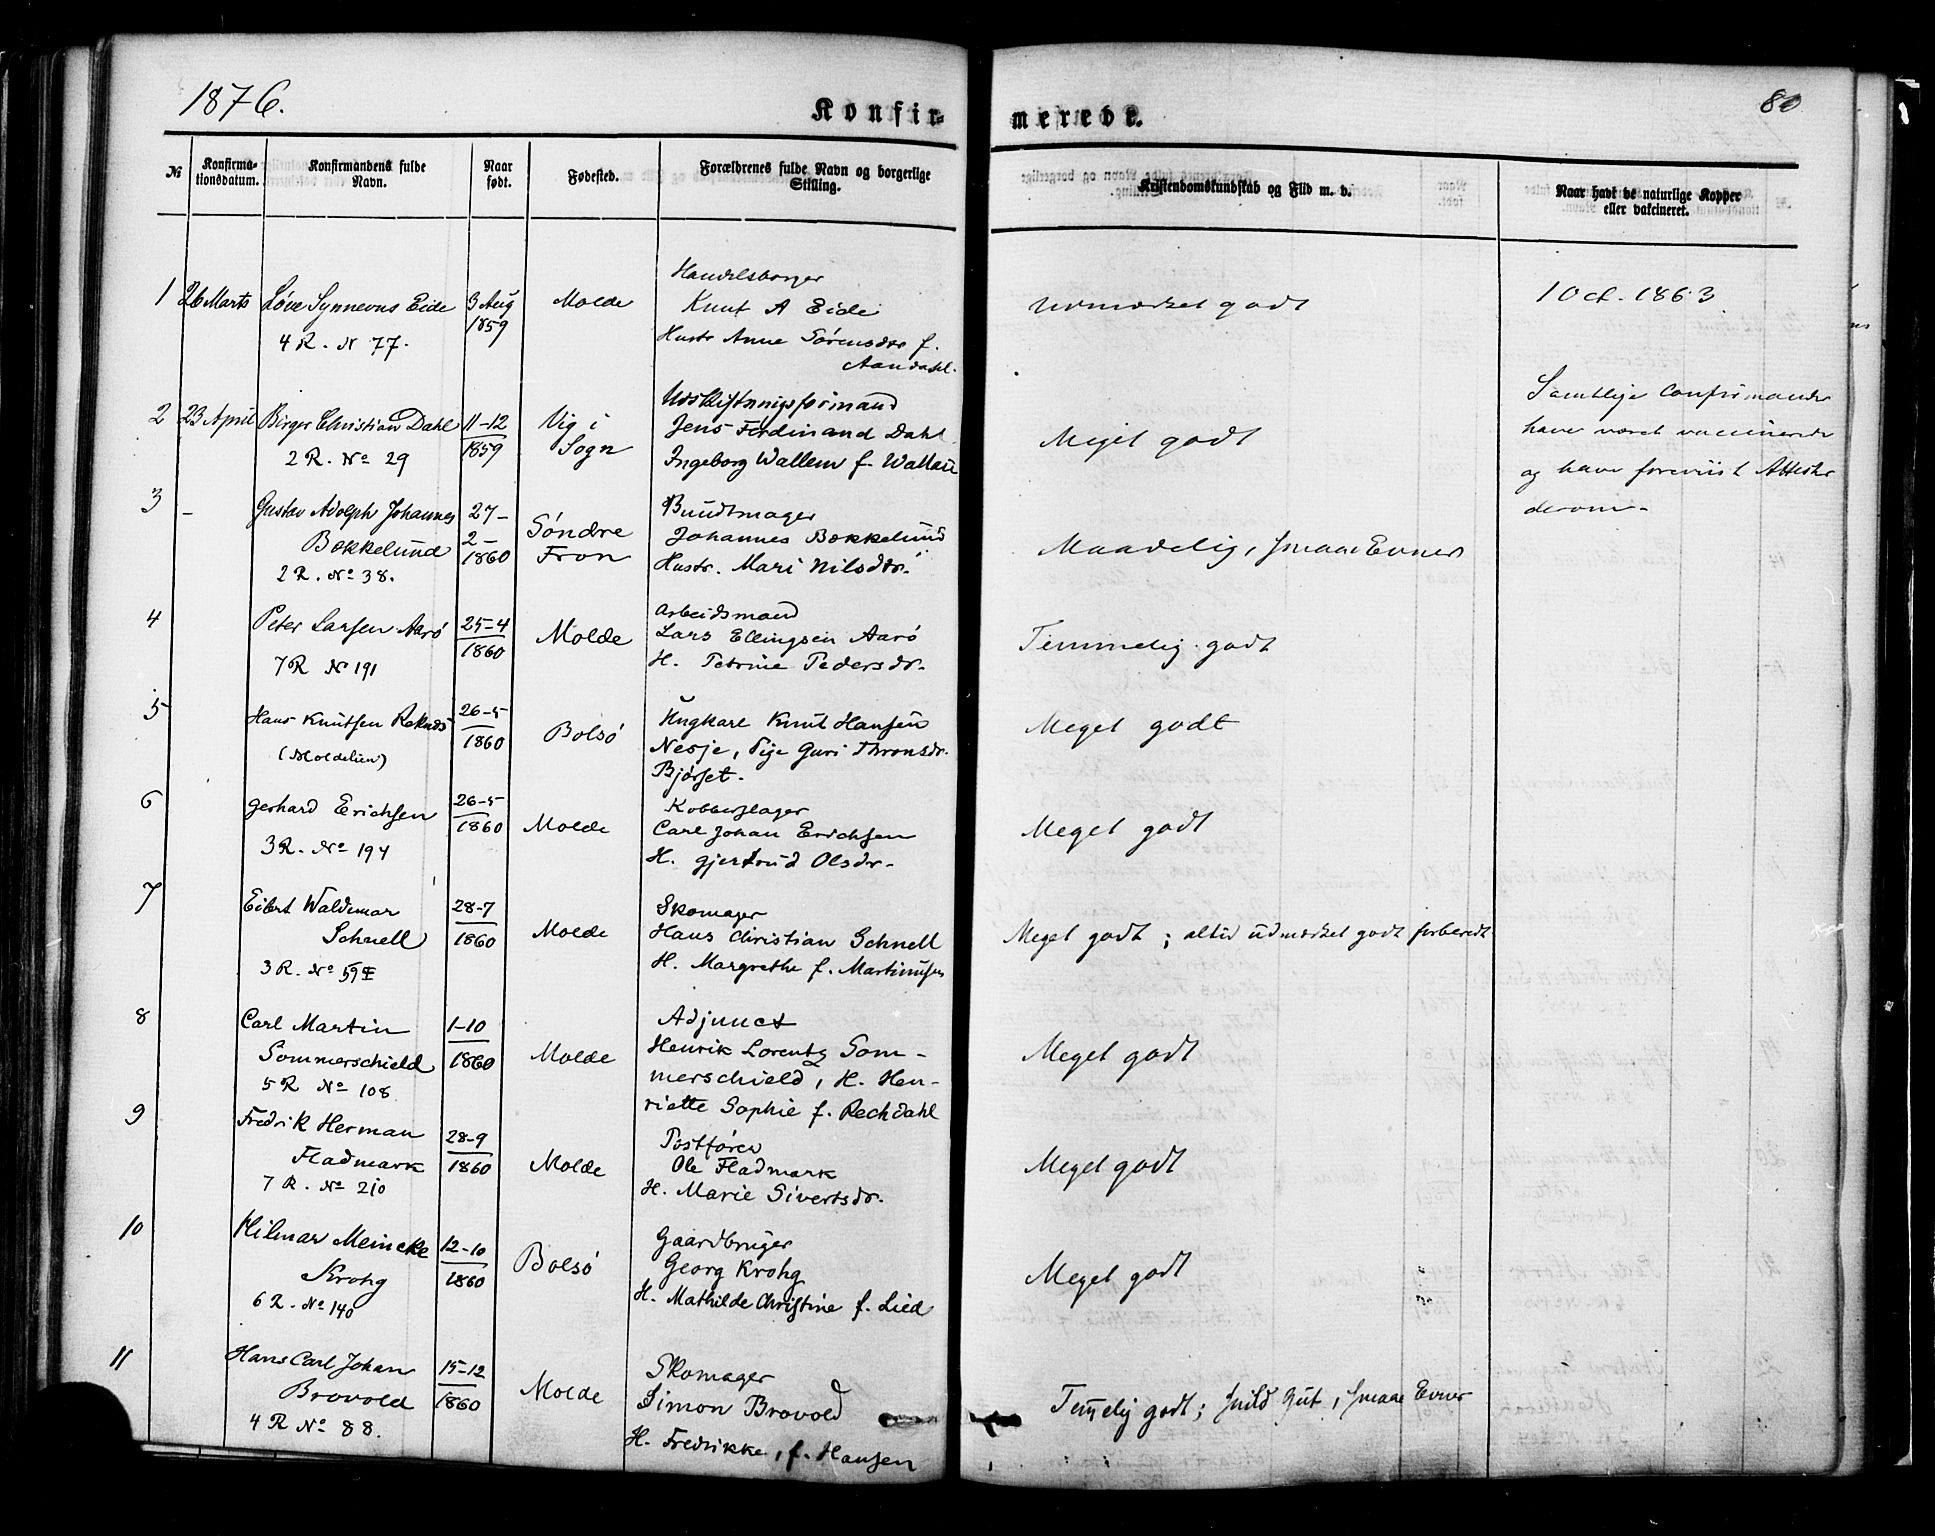 1876.
Konfir-
merede.
80
№
Konfirma-
tionsdatum.
Konfirmandens fulde
Navn.
Naar
født.
Fødested.
Forældrenes fulde Navn og borgerlige
Stilling.
Kristendomskundskab og Flid m. v.
Naar havt de naturlige Kopper
eller vakcineret.
1 26 Marts
Eide
4 R. N 77.
3 Aug
1859
Molde
Handelsborger
Knut A Eide
Hustr Anne Sørensdtr f.
Aandahl.
Udmærket godt
1 Oct. 1863
2 23 April
Birger Christian Dahl
2 R. No 29
11-12
1859
Vig i
Sogn
Udskiftningsformand
Jens Ferdinand Dahl
Ingeborg Wallem f. Wallem
Meget godt
Samtlige Confirmander
have været vaccinerede
og have foreviist Attester
derom.
3 -
Gustav Adolph Johannes
Bækkelund
2 R. No 38.
27-
2-
1860
Søndre
Fron
Bundtmager
Johannes Bækkelund
Hustr. Mari Nilsdtr.
Maadelig, smaae Evner
4
Peter Larsen Aarø
7 R No 191
25-4
1860
Molde
Arbeidsmand
Lars Ellingsen Aarø
H. Petrine Pedersdr.
Temmelig godt
5
Hans Knutsen Reknæs
(Moldelien)
26-5
1860
Bolsø
Ungkare Knut Hansen
Nesje, Pige Guri Thronsdr.
Bjørset.
Meget godt
6
Gerhard Erichsen
3 R. No 194
26-5
1860
Molde
Kobberslager
Carl Johan Erichsen
H. Gjertrud Olsdr.
Meget godt
7
Eibert Waldemar
Schnell
3 R. No 59
28-7
1860
Molde
Skomager
Hans Christian Schnell
H. Margrethe f. Martinusen
Meget godt; altid udmærket godt forberedt
8
Carl Martin
Sommerschield
5 R No 108
1-10
1860
Molde
Adjunct
Henrik Lorentz Som-
merschield, H. Hen-
riette Sophie f. Rechdahl
Meget godt
9
Fredrik Herman
Fladmark
7 R. No 210
28-9
1860
Molde
Postfører
Ole Fladmark
H. Marie Sivertsdr.
Meget godt
10
Hilmar Meincke
Krohg
6 R. No 140
12-10
1860
Bolsø
Gaardbruger
Georg Krohg
H. Mathilde Christine f. Lied
Meget godt
11
Hans Carl Johan
Brovold
4 R No 88.
15-12
1860
Molde
Skomager
Simon Brovold
H. Fredrikke, f. Hansen
Temmelig godt; snild Gut, smaae Evner